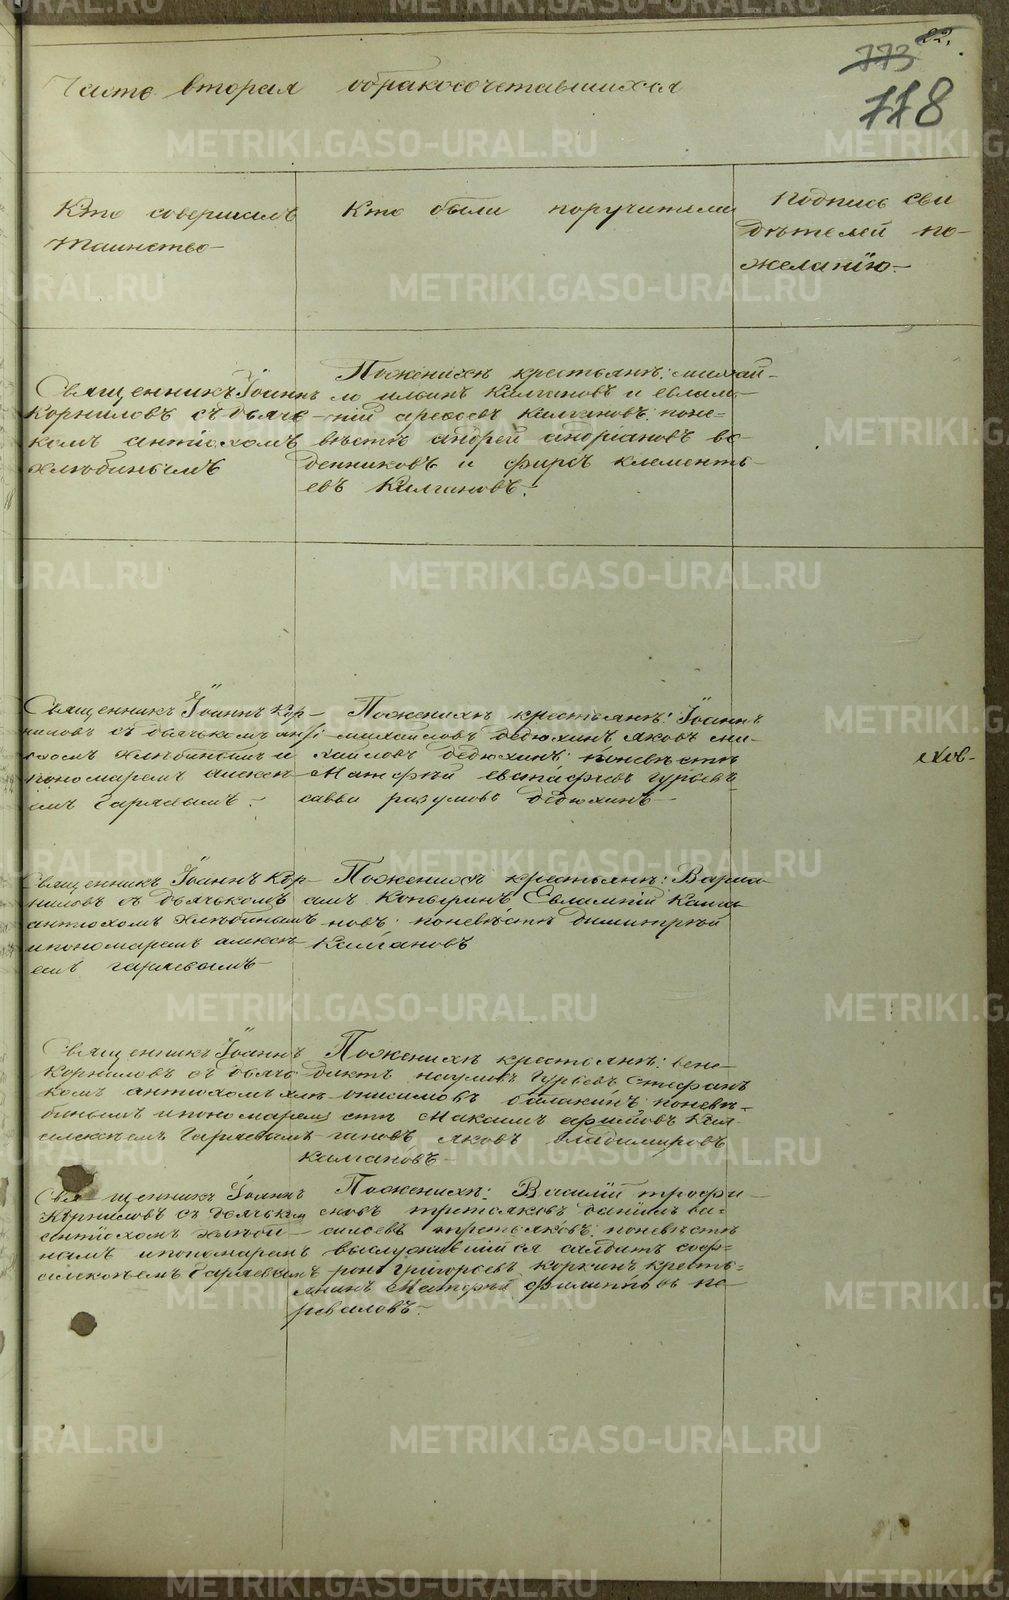 22.
773
118
Часть вторая обракосочетавшихся
Кто совершилъ
таинство
Кто были поручители
Подпись сви
дѣтелей по
желанію
Священникъ Іоаннъ
Корнилов съ дьяч
комъ антіохомъ
хлѣбинымъ
Поженихѣ крестьянъ: михай
ло ильинъ Калгановъ и евлам
пій Калгановъ поне
вѣстѣ андрей андріановъ во
денниковъ и фирсъ клементь
евъ Калгановъ.
Священникъ Іоаннъ Кор
ниловъ съ дьячькомъ анті
охомъ хлѣбинымъ и
пономаремъ алексѣ
емъ Гаряевымъ.
Поженихѣ крестьянъ: Іоаннъ
михайловъ дедюхинъ яковъ ми
хайловъ дедюхинъ; поневѣстѣ
Матфѣй евстафьевъ гурьевъ
савва разумовъ дедюхинъ
Священникъ Іоаннъ Кор
ниловъ съ дьячькомъ
антіохомъ хлѣбинымъ
ипономаремъ алексѣ
емъ гаряевымъ
Поженихѣ крестьянъ: Варла
амъ Копыринъ Евлампій Калга
новъ; поневѣстѣ димитрій
Калгановъ
Священникъ Іоаннъ
Корниловъ съ дьячь
комъ антіохомъ хлѣ
бинымъ ипономаремъ
алексѣемъ Гаряевымъ
Поженихѣ крестьянъ: вене
диктъ наумовъ Гурьевъ Стефанъ
онисимовъ балакинъ; поневѣ
стѣ Максимъ Кал
гановъ яковъ владимировъ
Калгановъ
Священникъ Іоаннъ
Корниловъ съ дьячькомъ
антіохомъ хлѣби
нымъ ипономаремъ
алексѣемъ Гаряевымъ
Поженихѣ: Василій трофи
мовъ третьяковъ даніилъ ва
силіевъ третьяковъ; поневѣстѣ
выслужившійся салдатъ соф
ронъ Григорьевъ коркинъ кресть
янинъ Матфѣй филиповъ пе
реваловъ
METRIKI.GASO-URAL.RU